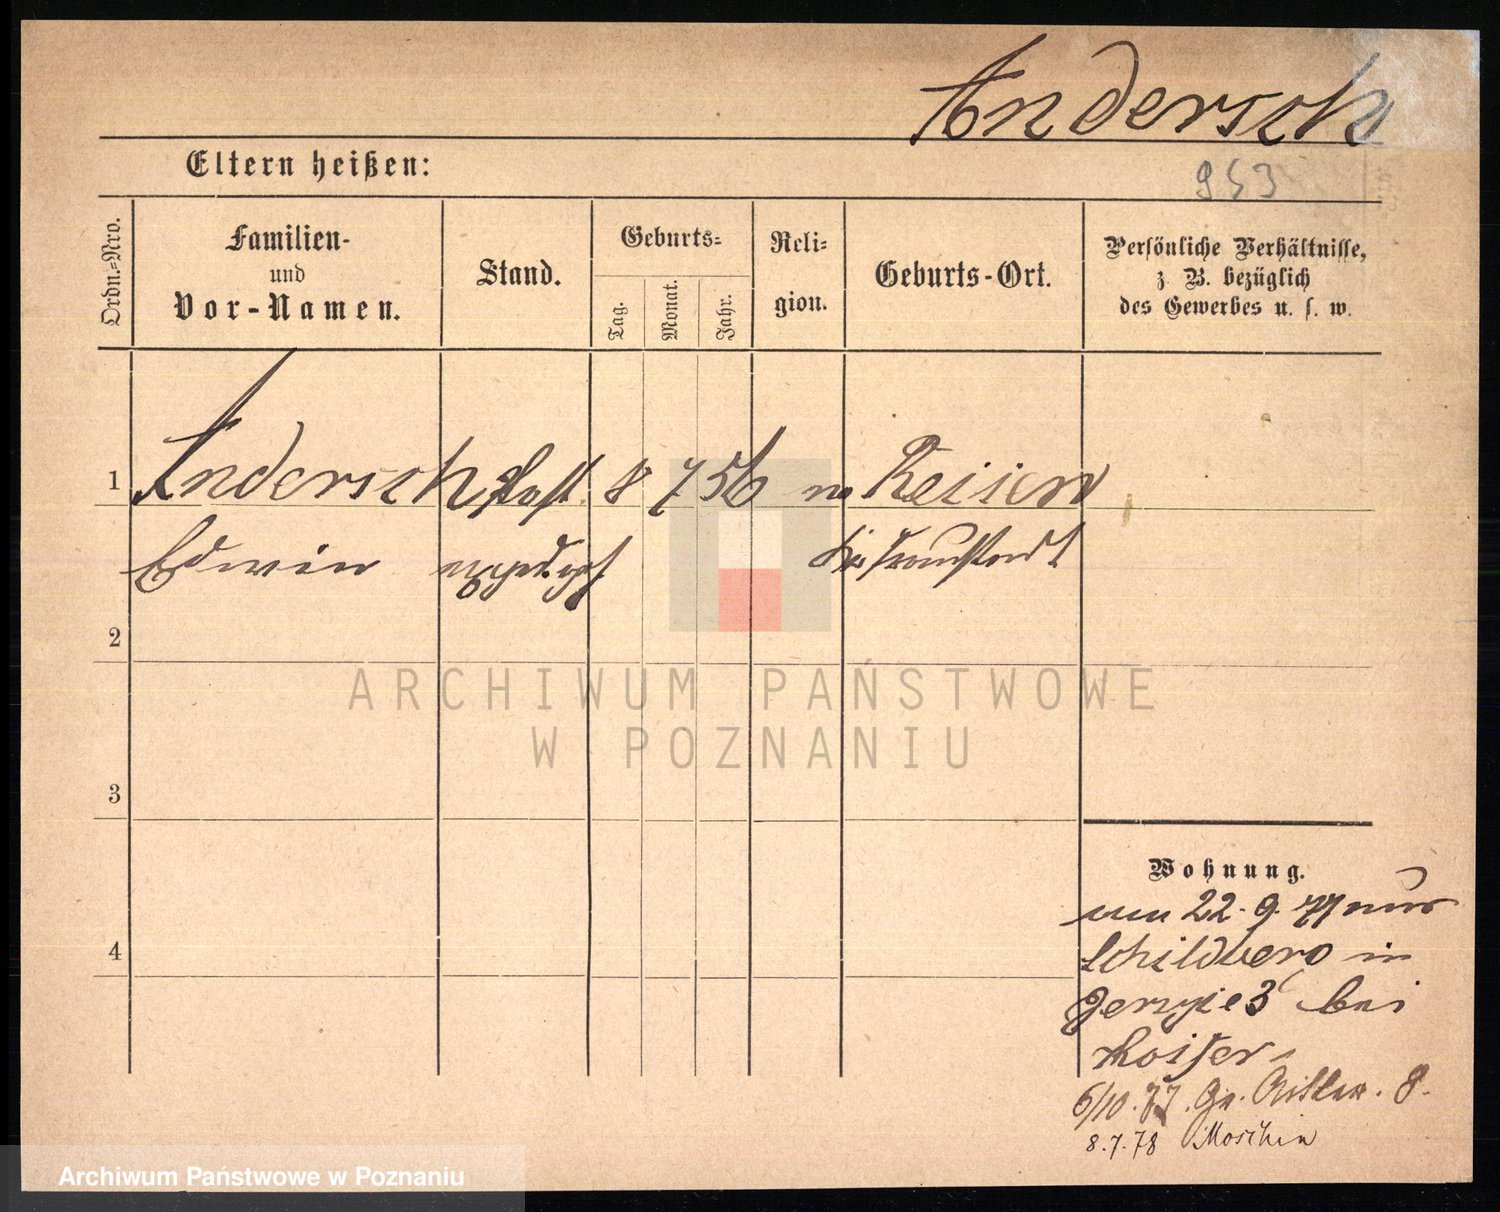 Andersch
Eltern heißen:
953
Ordn.=Nro.
Familien-
und
Vor-Namen.
Stand.
Geburts=
Tag.
Monat.
Jahr.
Reli=
gion.
Geburts-Ort.
Persönliche Verhältnisse,
z. B. bezüglich
des Gewerbes u. s. w.
1 Andersch Post 8 7 56 Reisen
Edwin Kr. Fraustadt
2
ARCHIWUM PAŃSTWOWE
W POZNANIU
3
Wohnung.
22. 9. 77
4
Schildberg in
3 bei
Kaiser
6/10. 77. Gr. Ritter. 8.
8.7.78 Moschin
Archiwum Państwowe w Poznaniu